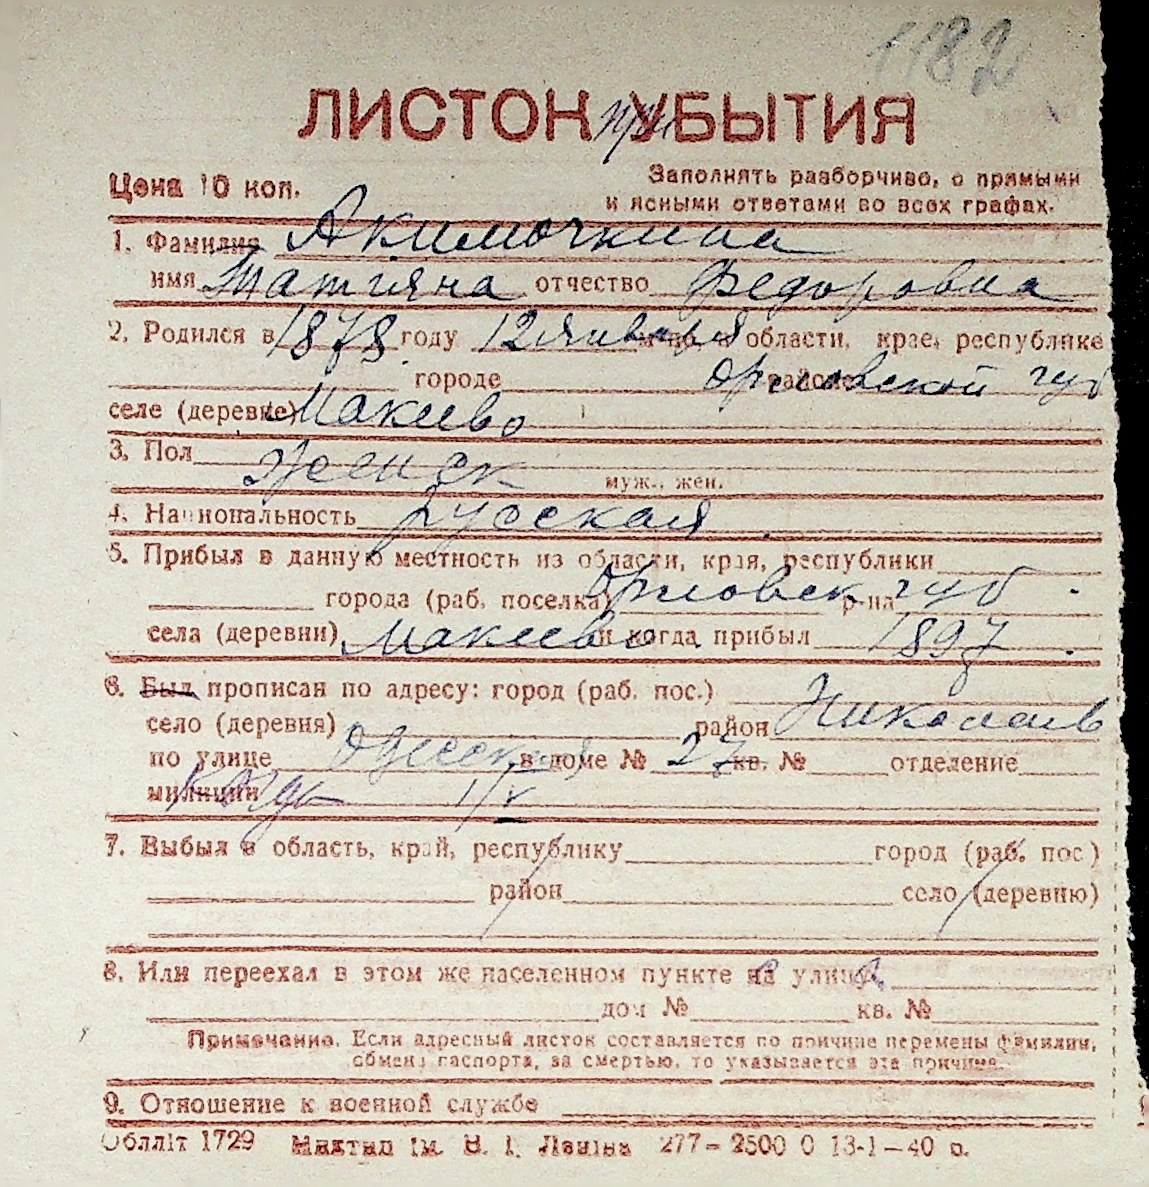 1182
ЛИСТОК при УБЫТИЯ
Цена 10 коп.
Заполнять разборчиво, с прямыми
и ясными ответами во всех графах.
1. Фамилия Акимочкина
имя Татияна отчество Федоровна
2. Родился в 1878 году 12 января области, крае, республике
городе районе Орловской губ
селе (деревне) Макеево
3. Пол Женск
муж., жен.
4. Национальность русская
5. Прибыл в данную местность из области, края, республики
города (раб. поселка) Орловск губ. р-на
села (деревни) Макеево и когда прибыл 1897.
6. Был прописан по адресу: город (раб. пос.)
село (деревня) район Николаев
по улице Одесская в доме № 27 кв. № отделение
милиции 1/V
7. Выбыл в область, край, республику город (раб. пос)
район село (деревню)
8. Или переехал в этом же населенном пункте на улицу
дом № кв. №
Примечание. Если адресный листок составляется по причине перемены фамилии,
обмена паспорта, за смертью, то указывается эта причина.
9. Отношение к военной службе
Обллiт 1729 Миктип iм. В. I. Ленiна 277—2500 0 13-1—40 р.